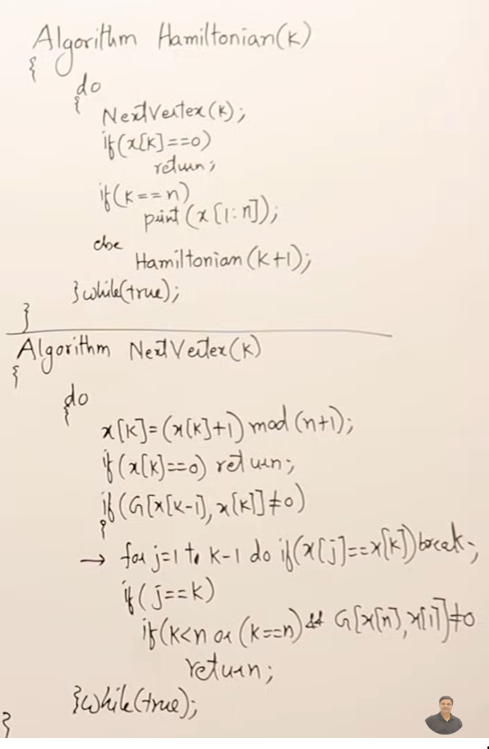 Algorithm Hamiltonian(k)
{
do
{
NextVertex(k);
if(x[k]==0)
return;
if(k==n)
print(x[1:n]);
else
Hamiltonian(k+1);
}while(true);
}
Algorithm NextVertex(k)
{
do
{
x[k]=(x[k]+1) mod (n+1);
if(x[k]==0) return;
if(G[x[k-1],x[k]]≠0)
{
→ for j=1 to k-1 do if(x[j]==x[k]) break;
if(j==k)
if(k<n or (k==n) && G[x[n],x[1]]≠0
return;
}while(true);
}